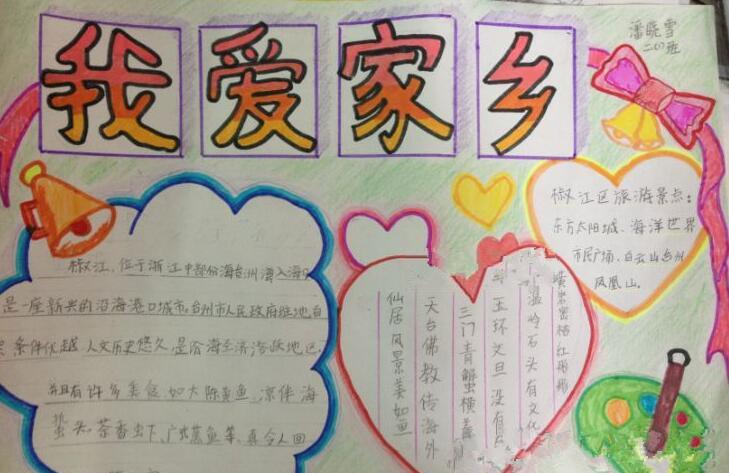 我爱家乡
潘晓雪
二(1)班
椒江区旅游景点:
东方太阳城、海洋世界
市民广场、白云山台州
凤凰山。
椒江,位于浙江中部份海台州湾入海口
是一座新兴的沿海港口城市,台州市人民政府驻地,自
条件优越,人文历史悠久,是沿海经济活跃地区,
并且有许多美食,如大陈黄鱼、凉伴海
蜇头、茶香虫下、广式蒸鱼等,真令人回
黄岩蜜桔红彤彤
温岭石头有文化
玉环文旦没有
三门青蟹横着
天台佛教传海外
仙居风景美如画